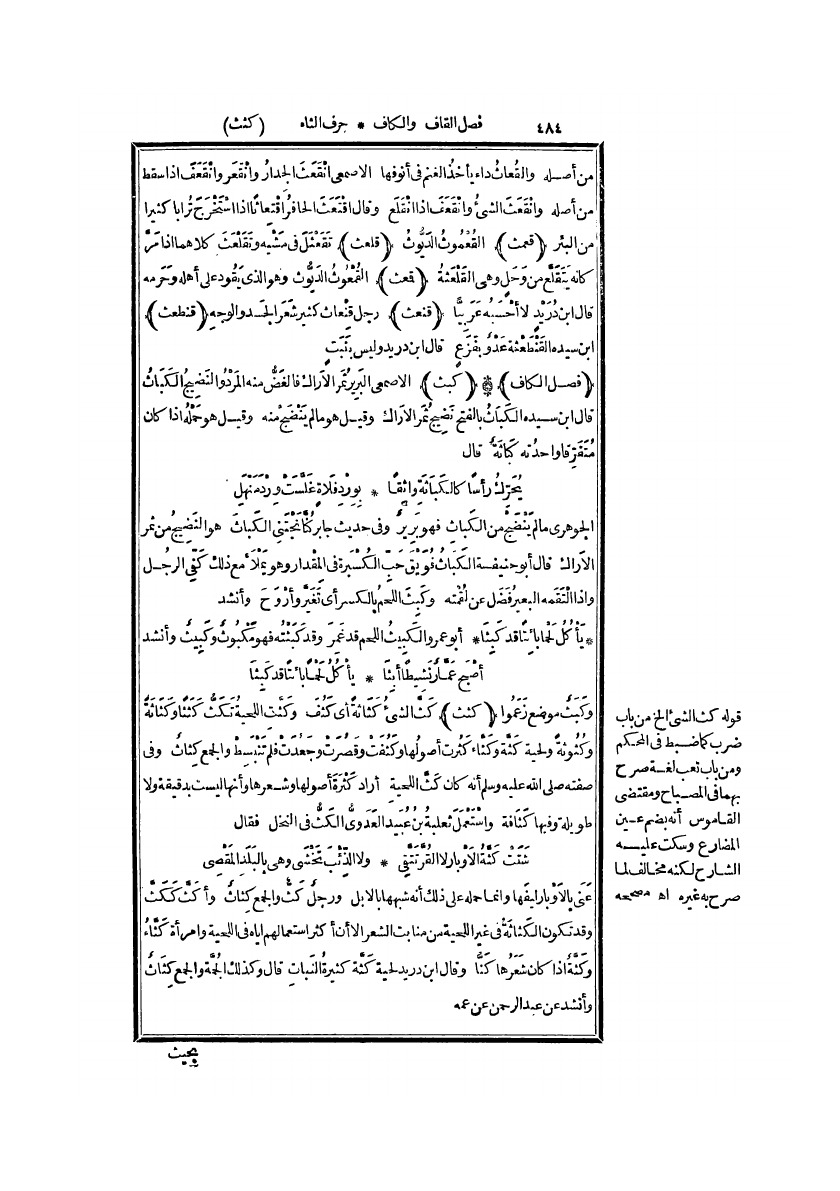 ٤٨٤ فصل القاف والكاف * حرف الثاء (كثث)
من أصله والقُعاثُ داء يأخذ الغنم في أنوفها الاصمعى انْقَعَثَ الجِدارُ وانْقَعَرَ وانْقَعَفَ اذا سقط
من أصله وانْقَعَثَ الشئُ وانْقَعَفَ اذا انْقَلَع وقال اقْتَعَثَ الحافرُ اقْتِعاثًا اذا اسْتَخْرَجَ تُرابا كثيرا
من البئر (قمث) القُعْمُوثُ الدَّيُّوثُ (قلعث) تَقَعْثَلَ فى مَشْيِه وتَقَلْعَثَ كلاهما اذا مَرَّ
كانه يَتَقَلَّعُ من وَحَلٍ وهى القَلْعَثةُ (قعث) القُمْعُوثُ الدَيُّوث وهو الذى يَقُود على أهله وحَرمه
قال ابن دُرَيْد لا أَحْسَبُه عَرَبِيًّا (قنعث) رجل قِنْعاث كثير شَعَرِ الجَسد والوجه (قنطعث)
ابن سيده القَنْطَعْثة عَدْوٌ بفَزَعٍ قال ابن دريد وليس بثَبَتٍ
(فصل الكاف) (كبث) الاصمعى البَرِيرُ ثَمَر الاَراك فالغَضُّ منه المَرْدُ والنَّضيجُ الكَبَاثُ
قال ابن سيده الكَبَاثُ بالفتح نَضِيجُ ثَمَر الاَراك وقيل هو ما لم يَنْضَجْ منه وقيل هو حَمْلُه اذا كان
مُتَفَرِّقا واحدته كَبَاثَةٌ قال
يُحَرِّكُ رأسًا كالكَبَاثةِ واثِقًا * بوِرْدِ فَلاةٍ غَلَّسَتْ وِرْدَ مَنْهَلِ
الجوهرى ما لم يَنْضَجْ من الكَباثِ فهو بَرِيرٌ وفى حديث جابر كُنَّا نَجْتَنِي الكَباثَ هو النَّضِيجُ من ثمر
الاَراك قال أبو حنيفة الكَبَاثُ فُوَيْقَ حَبِّ الكُسْبَرة فى المِقْدار وهو يَمْلَأُ مع ذلك كَفَّيِ الرجُل
واذا الْتَقَمه البعيرُ فَضَل عن لُقْمَته وكَبِثَ اللحم بالكسر أى تَغَيَّر وأَرْوَحَ وأنشد
* يَأكُلُ لَحْمًا بائِتًا قد كَبِثَا * أبو عمرو الكَبِيثُ اللحم قد غُمِرَ وقد كَبَثْتُه فهو مَكْبُوثٌ وكَبِيثٌ وأنشد
أَصْبَح عَمَّارٌ نَشِيطًا أَبِثَا * يأكُلُ لَحْمًا بائتًا قد كَبِثَا
وكَبَثٌ موضع زَعَمُوا (كثث) كَثَّ الشئُ كَثَاثَةً أى كَثُفَ وكَثَّتِ اللحيةُ تَكَثُّ كَثَثًا وكَثَاثَةً
وكُثُوثةً ولحية كَثَّة وكَثَّاء كَثُرَتْ أصولُها وكَثُفَتْ وقَصُرَتْ وجَعُدَتْ فلم تَنْبَسِطْ والجمع كِثَاثٌ وفى
صفته صلى الله عليه وسلم أنه كان كَثَّ اللحية أراد كَثْرَةَ أصولها وشعرها وأنها ليست بدقيقة ولا
طويلة وفيها كَثَافة واسْتَعْمَلَ ثعلبةُ بنُ عُبَيد العَدَوِىُّ الكَثَّ فى النخل فقال
شَتَتْ كَثَّةُ الاَوْبارِ لا القُرَّ تَتَّقِى * ولا الذِّئْبَ تَخْشَى وهى بالبَلَدِ المَقْصِى
عَنَى بالاَوْبار ليفَها وانما حمله على ذلك أنه شبهها بالابل ورجلٌ كَثٌّ والجمع كِثاثٌ وأَكَثُّ ككَثٍّ
وقد تكون الكَثاثَةُ فى غير اللحية من منابت الشعر الا أن أكثر استعمالهم اياه فى اللحية وامرأة كَثَّاءُ
وكَثَّةٌ اذا كان شَعَرُها كَثًّا وقال ابن دريد لحية كَثَّة كثيرةُ النبات قال وكذلك الجُمَّة والجمع كِثَاثٌ
وأنشد عن عبد الرحمن عن عمه
بحيث
قوله كث الشئ الخ من باب
ضرب كما ضبط فى المحكم
ومن باب تعب لغة صرح
بهما فى المصباح ومقتضى
القاموس أنه بضم عين
المضارع وسكت عليه
الشارح لكنه مخالف لما
صرح به غيره اه مصححه